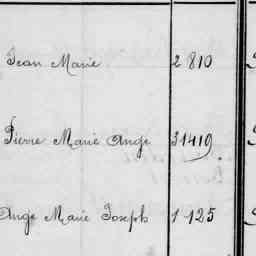 Jean Marie 2 810
Pierre Marie Ange 31419
Ange Marie Joseph 1 125